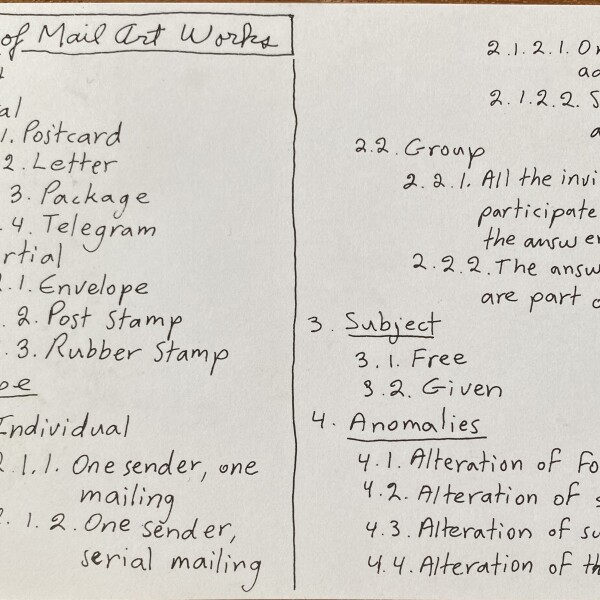 of Mail Art Works
1. Postcard
2. Letter
3. Package
4. Telegram
2.1. Envelope
2. Post Stamp
3. Rubber Stamp
Individual
2.1.1. One sender, one
mailing
2.1.2. One sender,
serial mailing
2.1.2.1.
2.1.2.2.
2.2. Group
2.2.1. All the
participate
the
2.2.2. The
are part
3. Subject
3.1. Free
3.2. Given
4. Anomalies
4.1. Alteration of
4.2. Alteration of
4.3. Alteration of
4.4. Alteration of